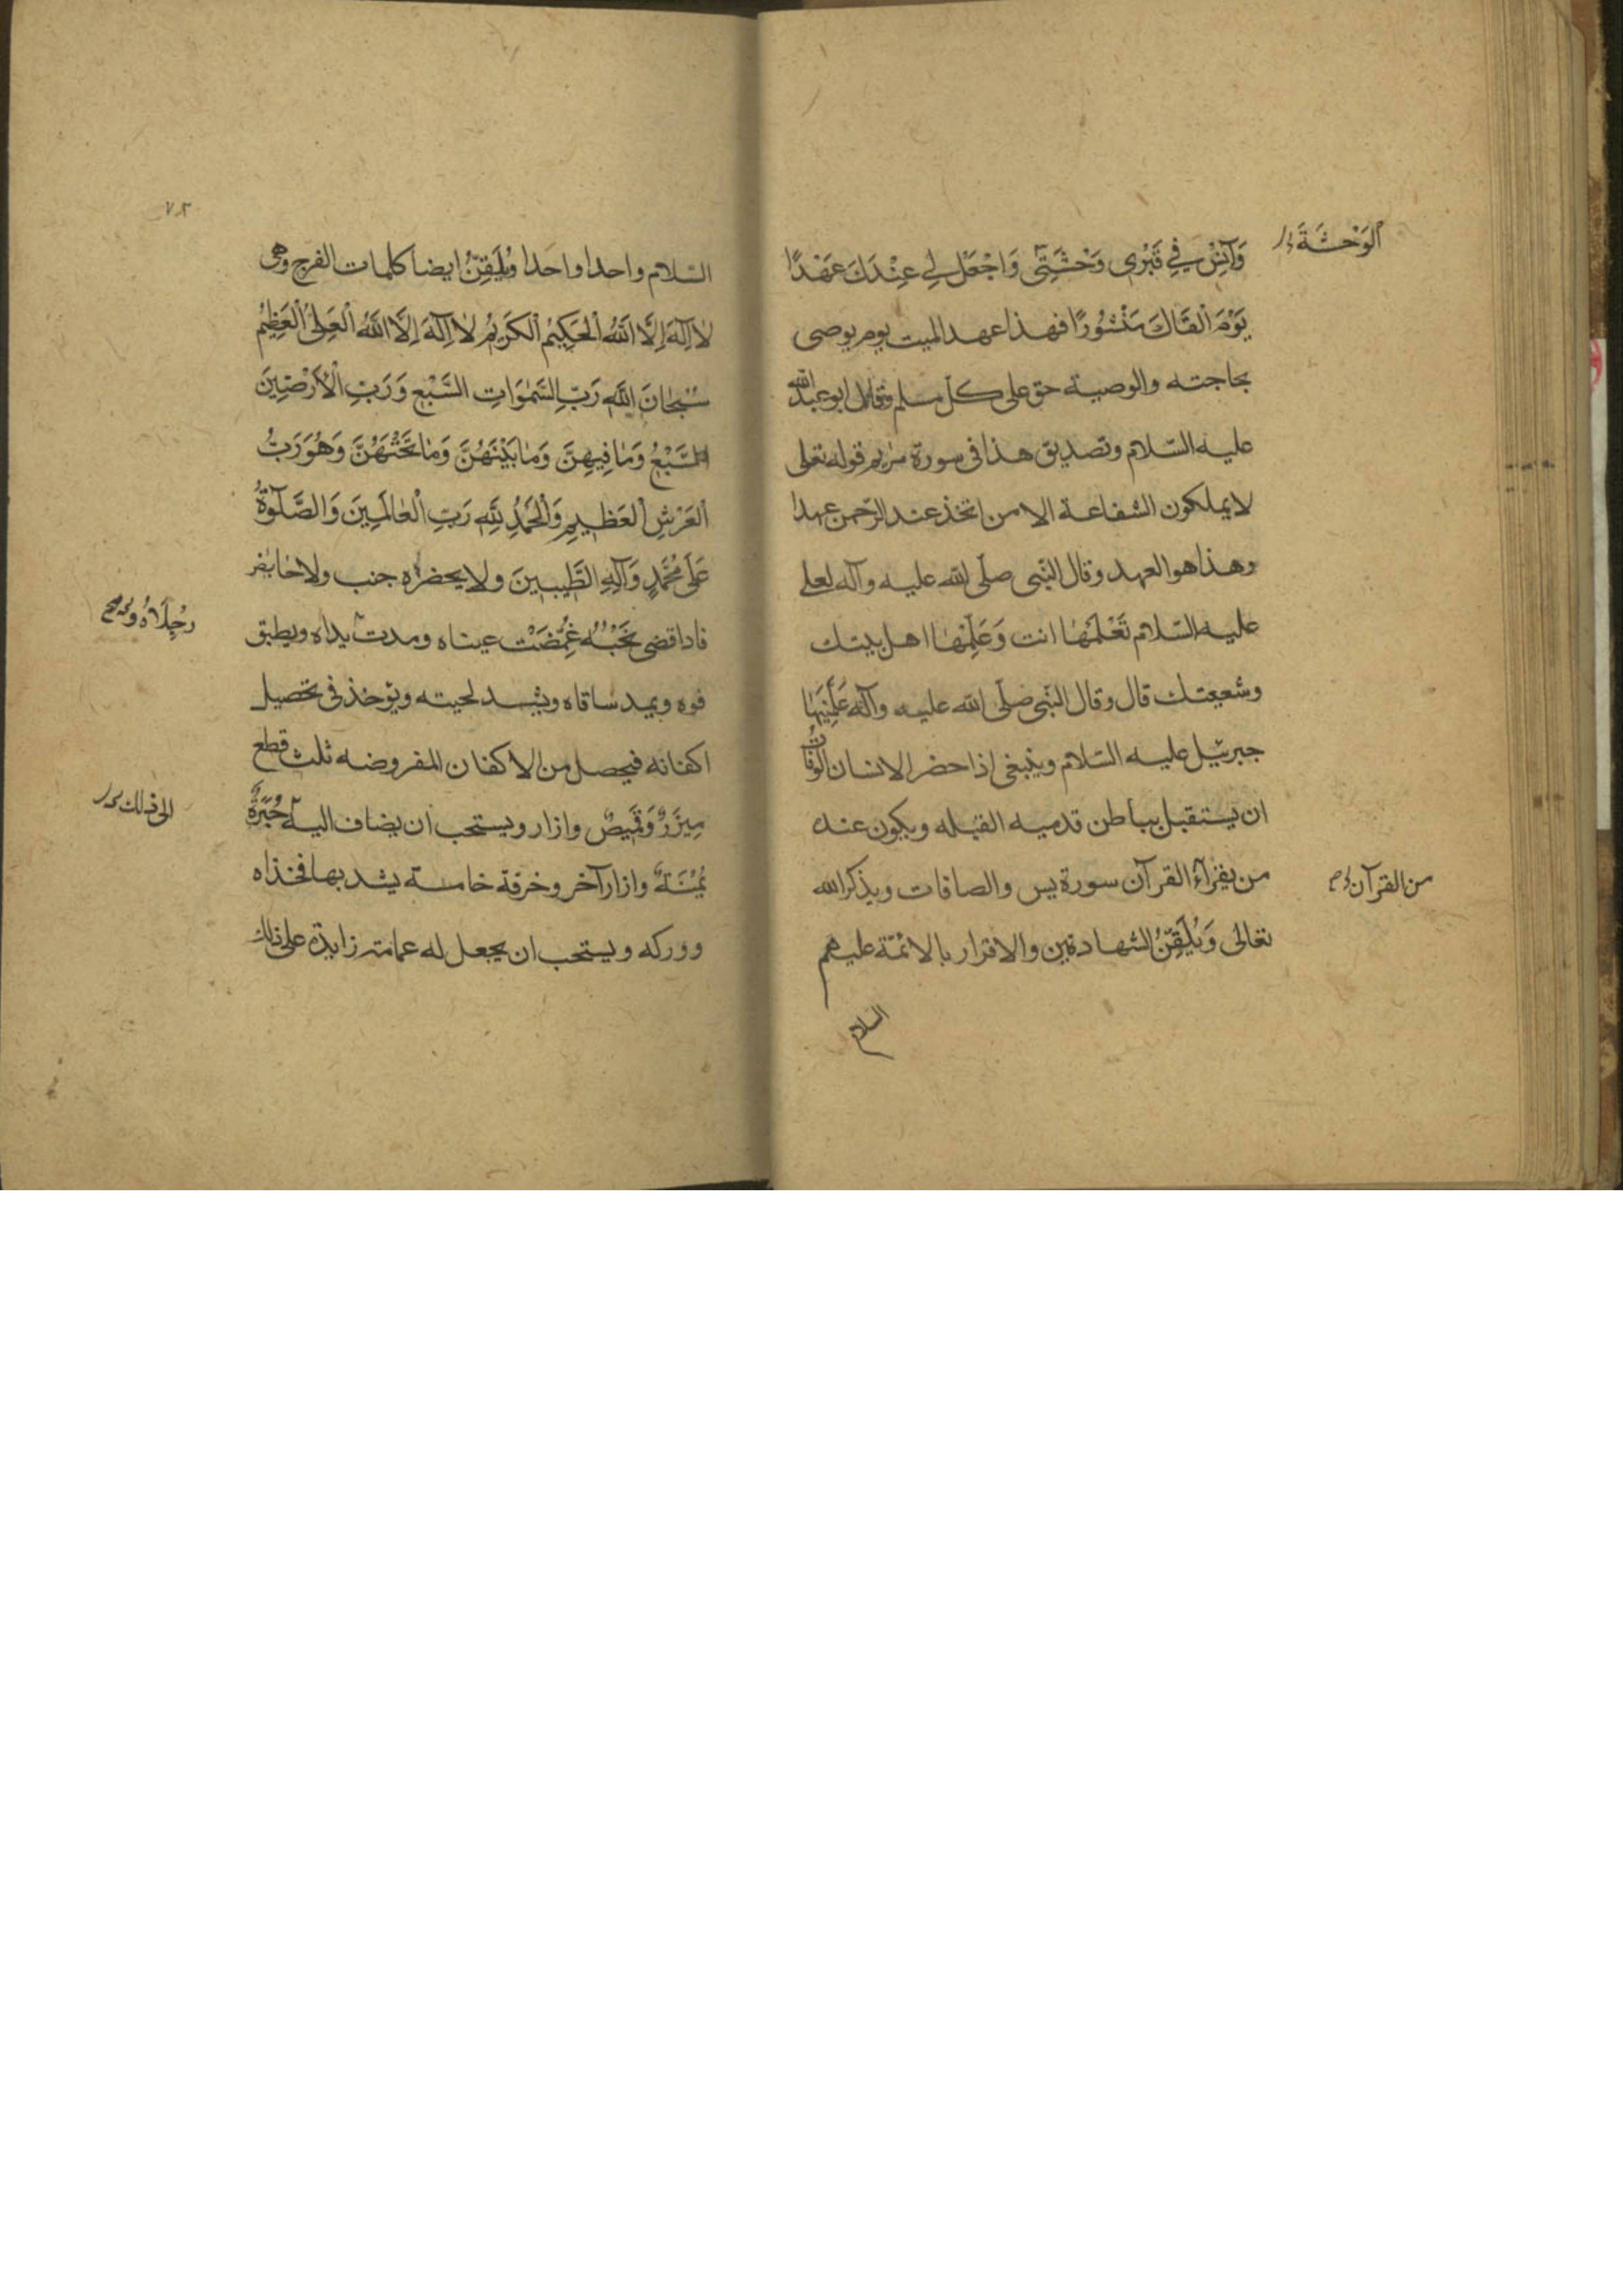 الوَحْشَةَ
وَآنِسْ فِي قَبْرِى وَحْشَتِى وَاجْعَلْ لِي عِنْدَكَ عَهْدًا
يَوْمَ اَلْقَاكَ مَنْشُورًا فهذا عهد الميت يوم يوصى
بحاجته والوصية حق على كل مسلم وقال ابو عبد الله
عليه السّلام وتصديق هذا فى سورة مريم قوله تعلى
لا يملكون الشفاعة الا من اتخذ عند الرّحمن عهدا
وهذا هو العهد وقال النّبى صلّى الله عليه وآله لعلى
عليه السّلام تَعْلَمْهٰا انت وَعَلِّمْهٰا اهل بيتك
وشيعتك قال وقال النّبى صلّى الله عليه وآله عَلَّمَنِيهٰا
جبرئيل عليه السّلام وينبغى اذا حضر الانسان الوفات
ان يستقبل بباطن قدميه القبله ويكون عنده
من يقرآء القرآن سورة يس والصافات ويذكر الله
من القرآن
تعالى وَيُلَقِّنُ الشهادتين والاقرار بالائمّة عليهم
السلام
٧٢
السّلام واحدا واحدا وَيُلَقِّنُ ايضا كلمات الفرج وهى
لاٰ اِلٰهَ اِلَّا اللّٰهُ الْحَكِيمُ الْكَرِيمُ لاٰ اِلٰهَ اِلَّا اللّٰهُ الْعَلِىُّ الْعَظِيمُ
سُبْحٰانَ اللّٰهِ رَبِّ السَّمٰوَاتِ السَّبْعِ وَرَبِّ الْاَرْضِينَ
السَّبْعِ وَمٰا فِيهِنَّ وَمٰا بَيْنَهُنَّ وَمٰا تَحْتَهُنَّ وَهُوَ رَبُّ
الْعَرْشِ الْعَظِيمِ وَالْحَمْدُ لِلّٰهِ رَبِّ الْعٰالَمِينَ وَالصَّلٰوةُ
عَلىٰ مُحَمَّدٍ وَآلِهِ الطَّيِّبِينَ ولا يحضراه جنب ولا حايض
فاذا قضى نَحْبُهُ غُمِّضَتْ عيناه ومدت يداه ويطبق
رِجْلَاهُ
فوه ويمد ساقاه ويشد لحيته ويوخذ فى تحصيل
اكفانه فيحصل من الاكفان المفروضه ثلث قطع
مِيزَرٌ وَقَمِيصٌ وازار ويستحب ان يضاف اليه حُبَرَةٌ
الى ذلك
يُمْنَةٌ وازار آخر وخرقة خامسة يشد بها فخذاه
ووركه ويستحب ان يجعل له عمامة زايدة على ذلك